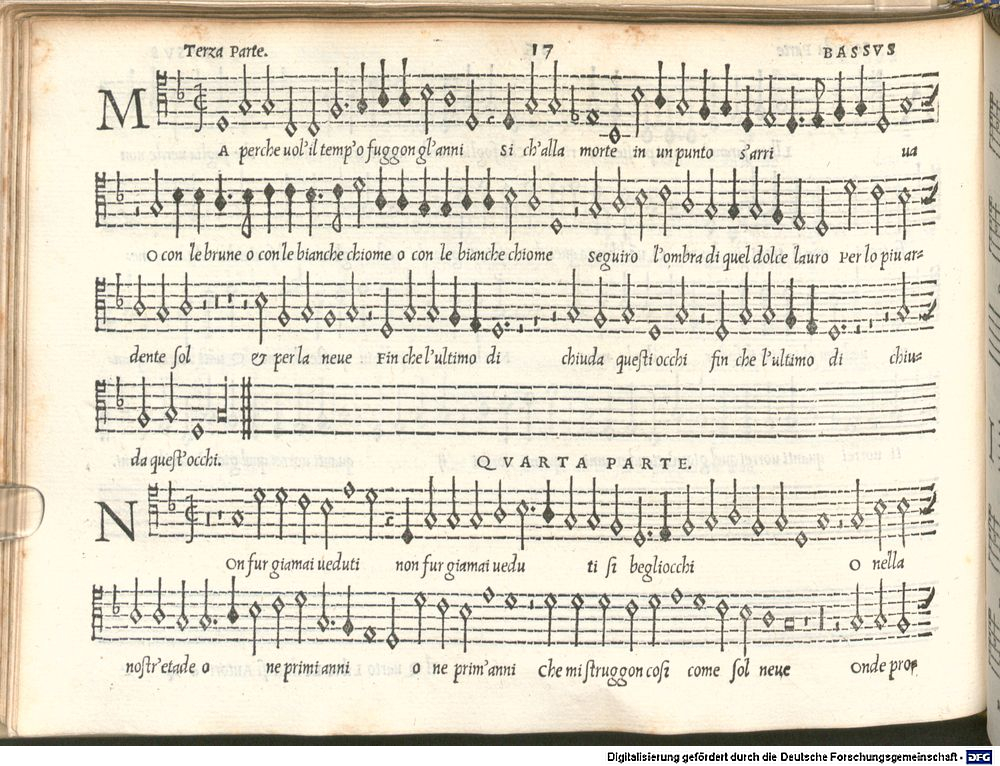 Terza Parte. 17 BASSVS
MA perche uol'il temp'o fuggon gl'anni Si ch'alla morte in un punto s'arri ua
O con le brune o con le bianche chiome o con le bianche chiome seguirò l'ombra di quel dolce lauro Per lo piu ar=
dente sol & per la neue Fin che l'ultimo di chiuda questi occhi fin che l'ultimo di chiu=
da quest'occhi. QVARTA PARTE.
NOn fur giamai ueduti non fur giamai uedu ti si begliocchi O nella
nostr'etade o ne primi anni o ne prim'anni Che mi struggon così come sol neue Onde prof
Digitalisierung gefördert durch die Deutsche Forschungsgemeinschaft - DFG